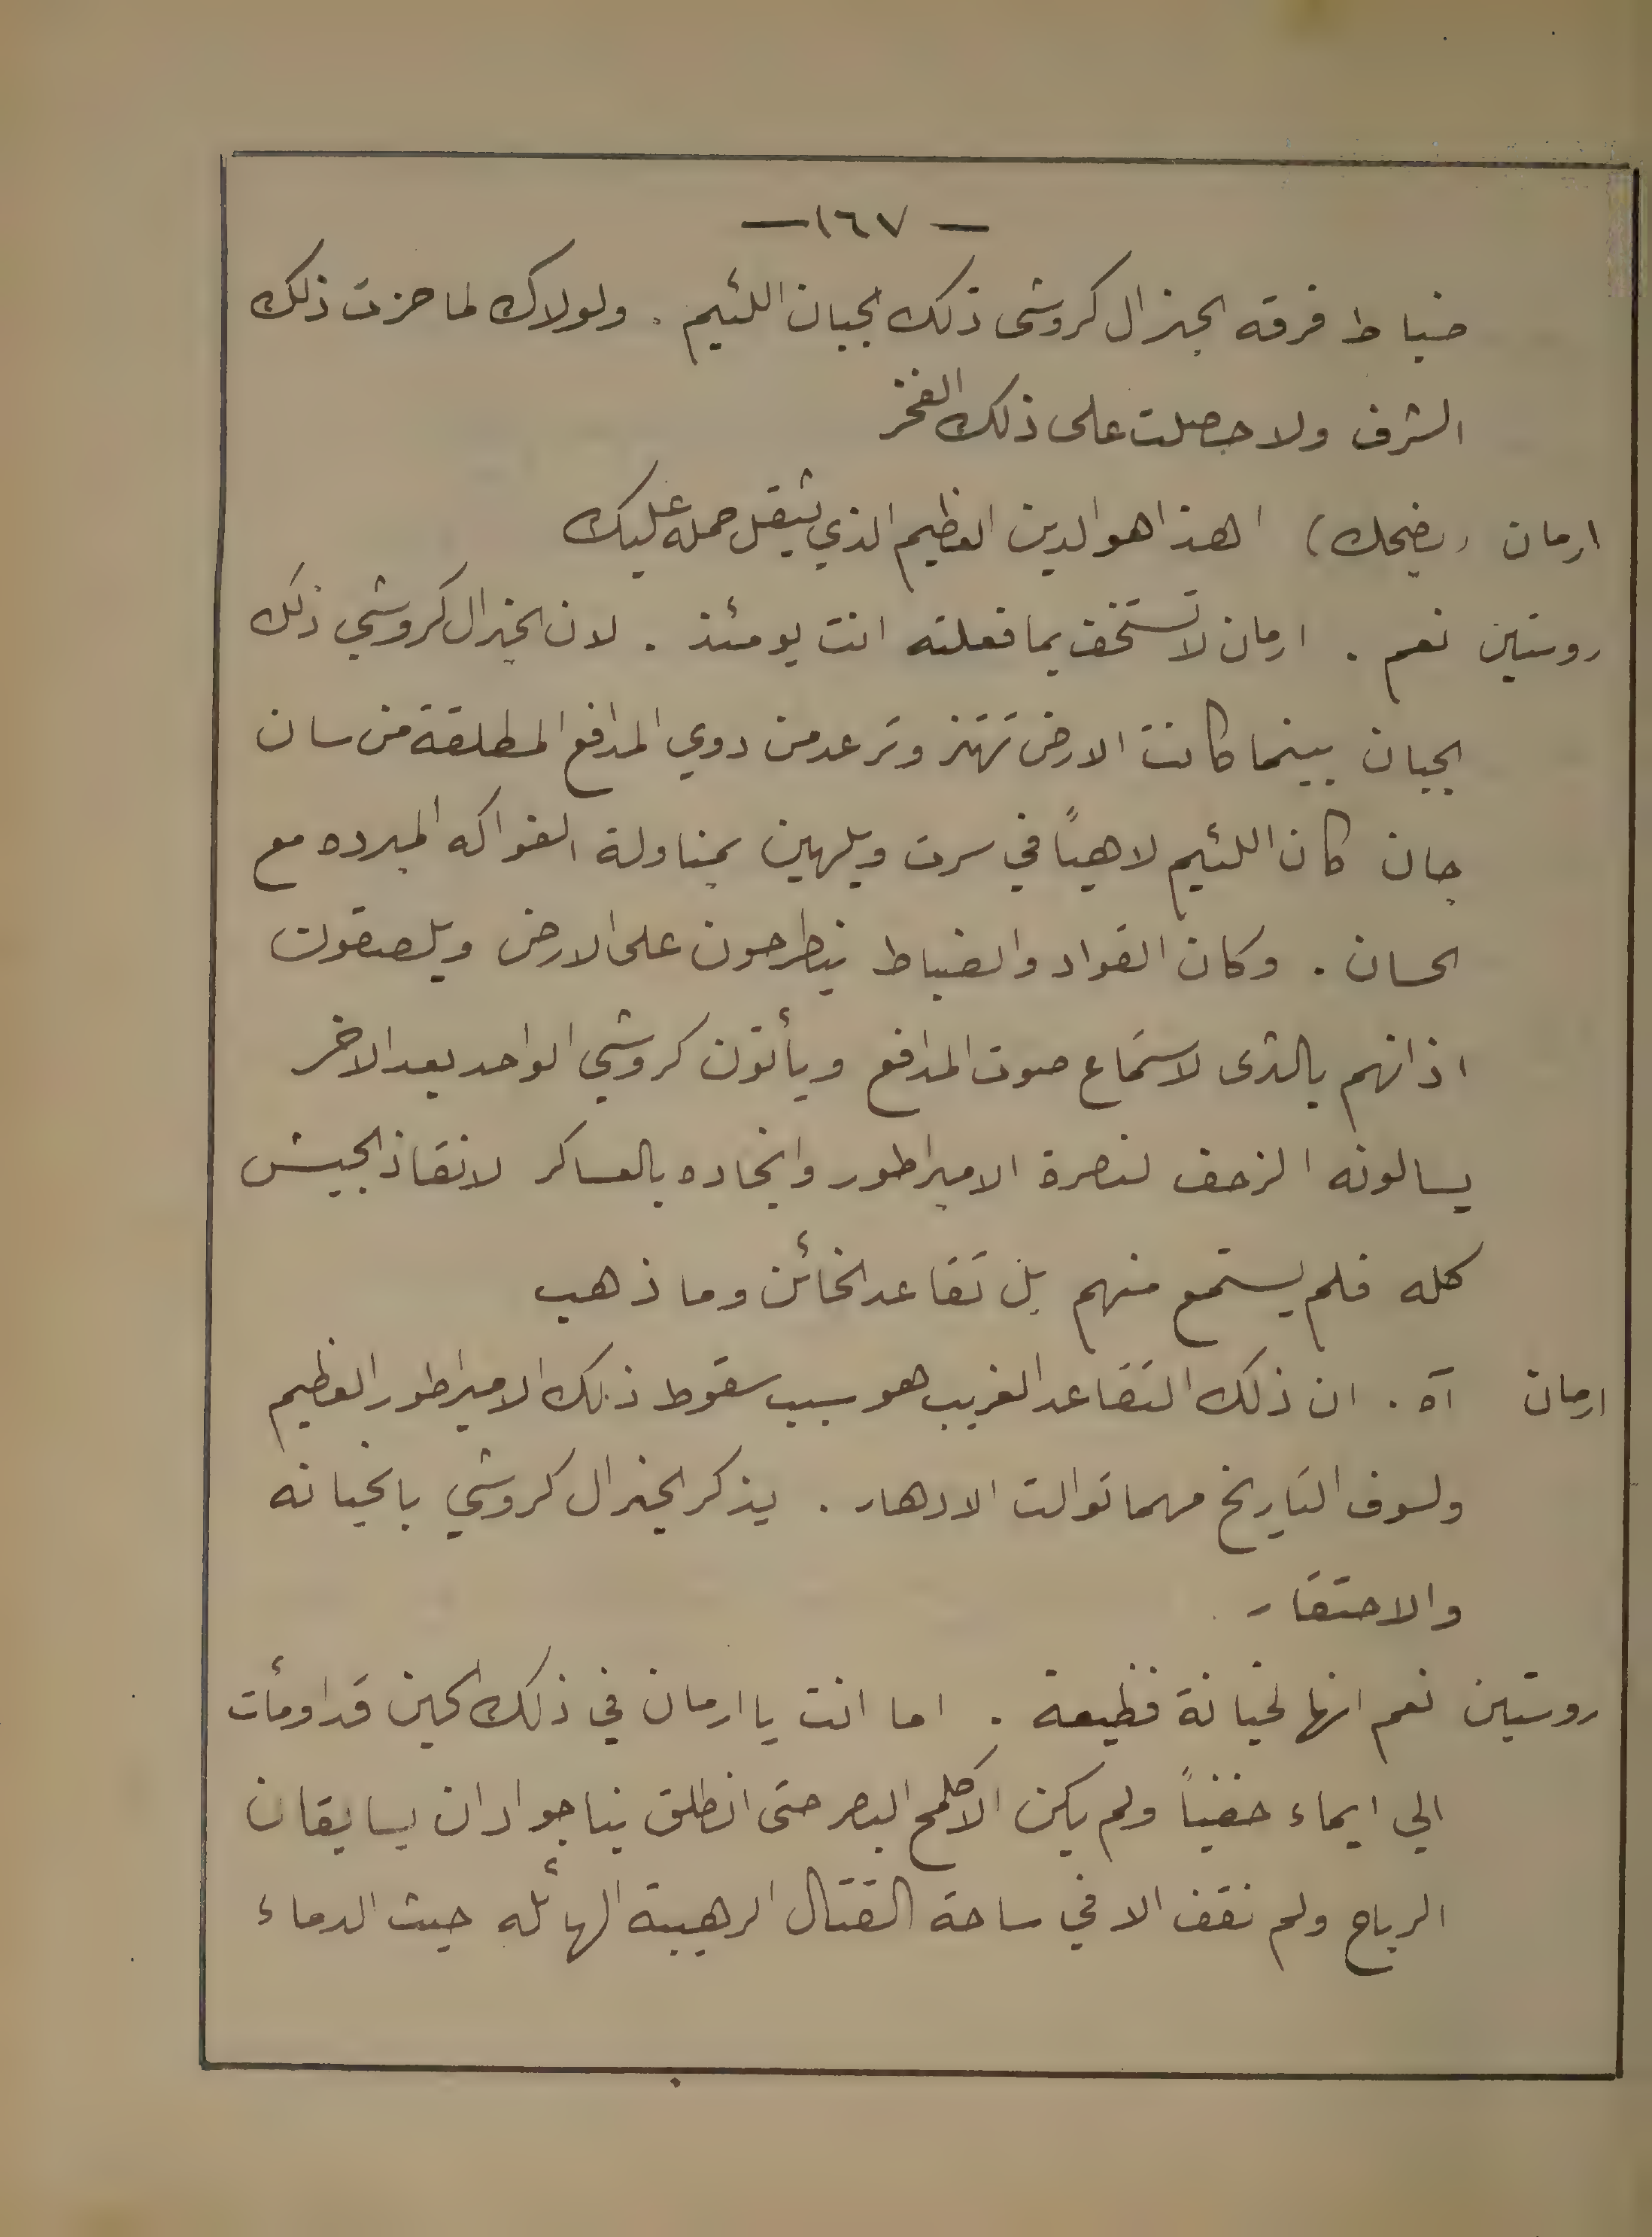 — ١٦٧ —
ضباط فرقه الجنرال كروشى ذلك الجبان اللئيم . ولولاك لما حزت ذلك
الشرف ولا حصلت على ذلك الفخر
ارمان (يضحك) اهذا هو الدين العظيم الذي يثقل حمله عليك
روستين نعم . ارمان لا تستخف بما فعلته انت يومئذ . لان الجنرال كروشي ذلك
الجبان بينما كانت الارض تهتز وترعد من دوي المدافع المطلقة من سان
جان كان اللئيم لاهياً في سرت ويلهين بمناولة الفواكه المبرده مع
الحسان . وكان القواد والضباط ينطرحون على الارض ويلصقون
اذانهم بالثرى لاستماع صوت المدافع ويأتون كروشي الواحد بعد الاخر
يسالونه الزحف لنصرة الامبراطور وانجاده بالعساكر لانقاذ الجيش
كله فلم يستمع منهم بل تقاعد الخائن وما ذهب
ارمان آه . ان ذلك التقاعد الغريب هو سبب سقوط ذلك الامبراطور العظيم
ولسوف التاريخ مهما توالت الادهار . يذكر الجنرال كروشي بالخيانه
والاحتقار
روستين نعم انها لخيانة فظيعة . اما انت يا ارمان في ذلك الحين قد اومأت
الي ايماء خفياً ولم يكن الا كلمح البصر حتى انطلق بنا جوادان يسابقان
الرياح ولم نقف الا في ساحة القتال الرهيبة الهائله حيث الدماء